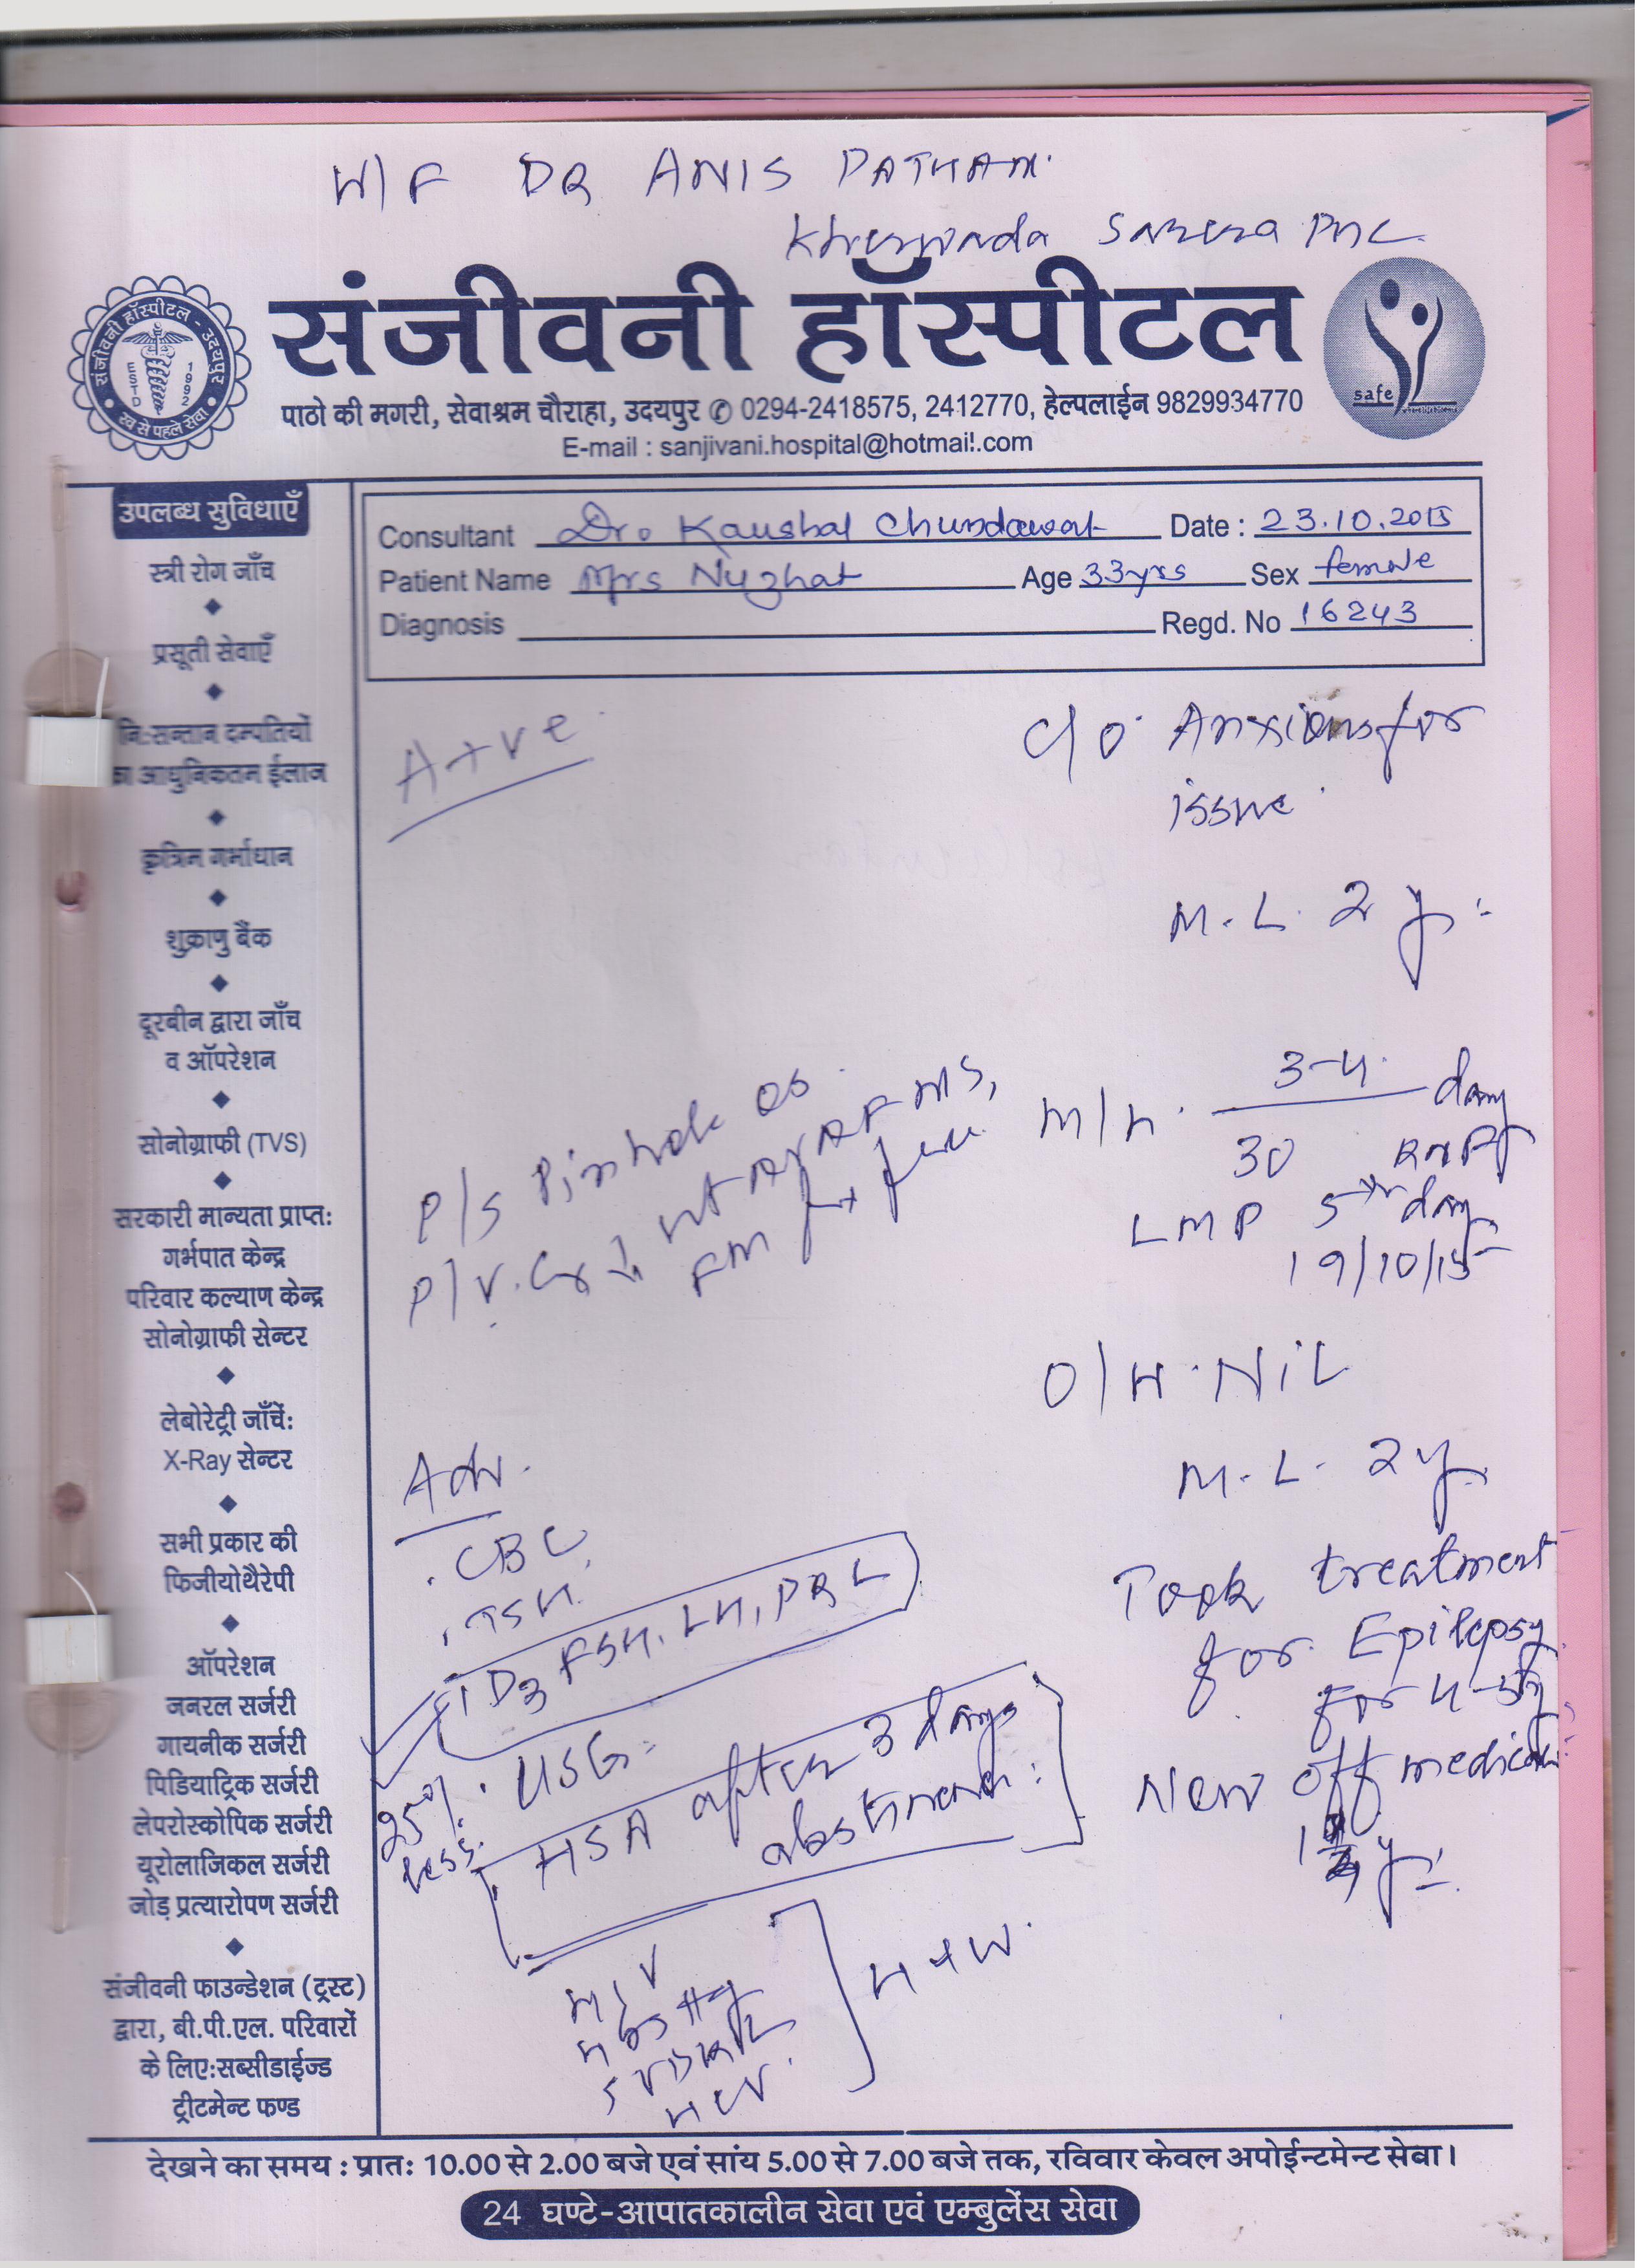 W/F DR ANIS PATHAN
Sarera PHC
संजीवनी हॉस्पीटल - उदयपुर
ESTD 1992
स्व से पहले सेवा
संजीवनी हॉस्पीटल
safe
पाठो की मगरी, सेवाश्रम चौराहा, उदयपुर ✆ 0294-2418575, 2412770, हेल्पलाईन 9829934770
E-mail : sanjivani.hospital@hotmail.com
उपलब्ध सुविधाएँ
स्त्री रोग जाँच
प्रसूती सेवाएँ
नि:सन्तान दम्पतियों
का आधुनिकतम ईलाज
कृत्रिम गर्भाधान
शुक्राणु बैंक
दूरबीन द्वारा जाँच
व ऑपरेशन
सोनोग्राफी (TVS)
सरकारी मान्यता प्राप्त:
गर्भपात केन्द्र
परिवार कल्याण केन्द्र
सोनोग्राफी सेन्टर
लेबोरेट्री जाँचें:
X-Ray सेन्टर
सभी प्रकार की
फिजीयोथैरेपी
ऑपरेशन
जनरल सर्जरी
गायनीक सर्जरी
पिडियाट्रिक सर्जरी
लेपरोस्कोपिक सर्जरी
यूरोलाजिकल सर्जरी
जोड़ प्रत्यारोपण सर्जरी
संजीवनी फाउन्डेशन (ट्रस्ट)
द्वारा, बी.पी.एल. परिवारों
के लिए:सब्सीडाईज्ड
ट्रीटमेन्ट फण्ड
Consultant Dr. Kaushal Chundawat Date : 23.10.2015
Patient Name Mrs Nuzhat Age 33yrs Sex female
Diagnosis Regd. No 16243
A+ve
C/O Anxious for
issue
M.L. 2 y
P/S Pinhole os
P/V. Cx ut AV AF MS,
FM
M/H. 3-4 / 30 day
LMP 5th day
19/10/15
O/H. NiL
M.L. 2y
Adv.
. CBC
. TSH
D3 FSH, LH, PRL
. USG
25% less
HSA after 3 days
abstinence
HIV
HBsAg
VDRL
HCV
H+W
Took treatment
for Epilepsy
for 4-5y
Now off medication
देखने का समय : प्रात: 10.00 से 2.00 बजे एवं सांय 5.00 से 7.00 बजे तक, रविवार केवल अपोईन्टमेन्ट सेवा।
24 घण्टे-आपातकालीन सेवा एवं एम्बुलेंस सेवा